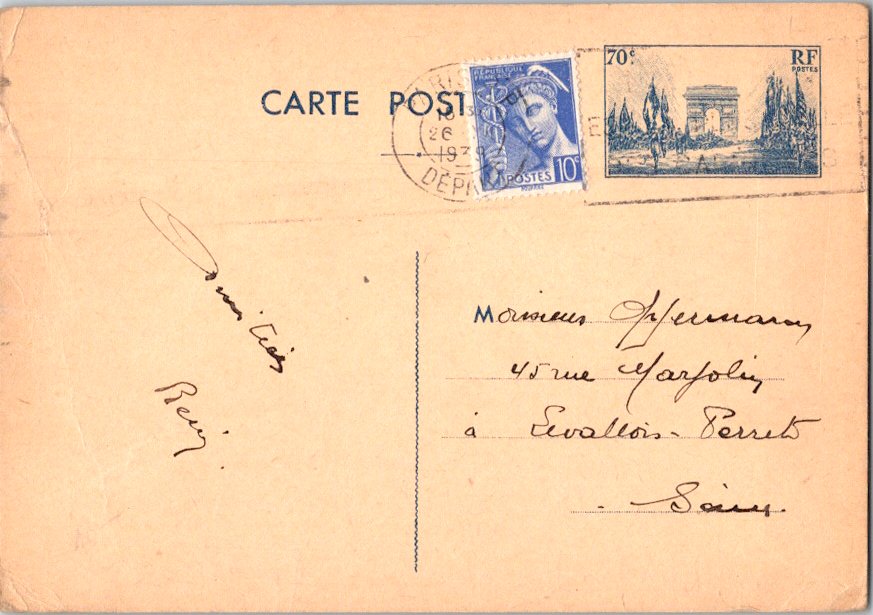 CARTE POST
26
1939
DÉPA
RÉPUBLIQUE
FRANÇAISE
POSTES 10c
70c
RF
POSTES
Amitiés
Monsieur Offermann
45 rue Marjolin
à Levallois-Perret
Seine.